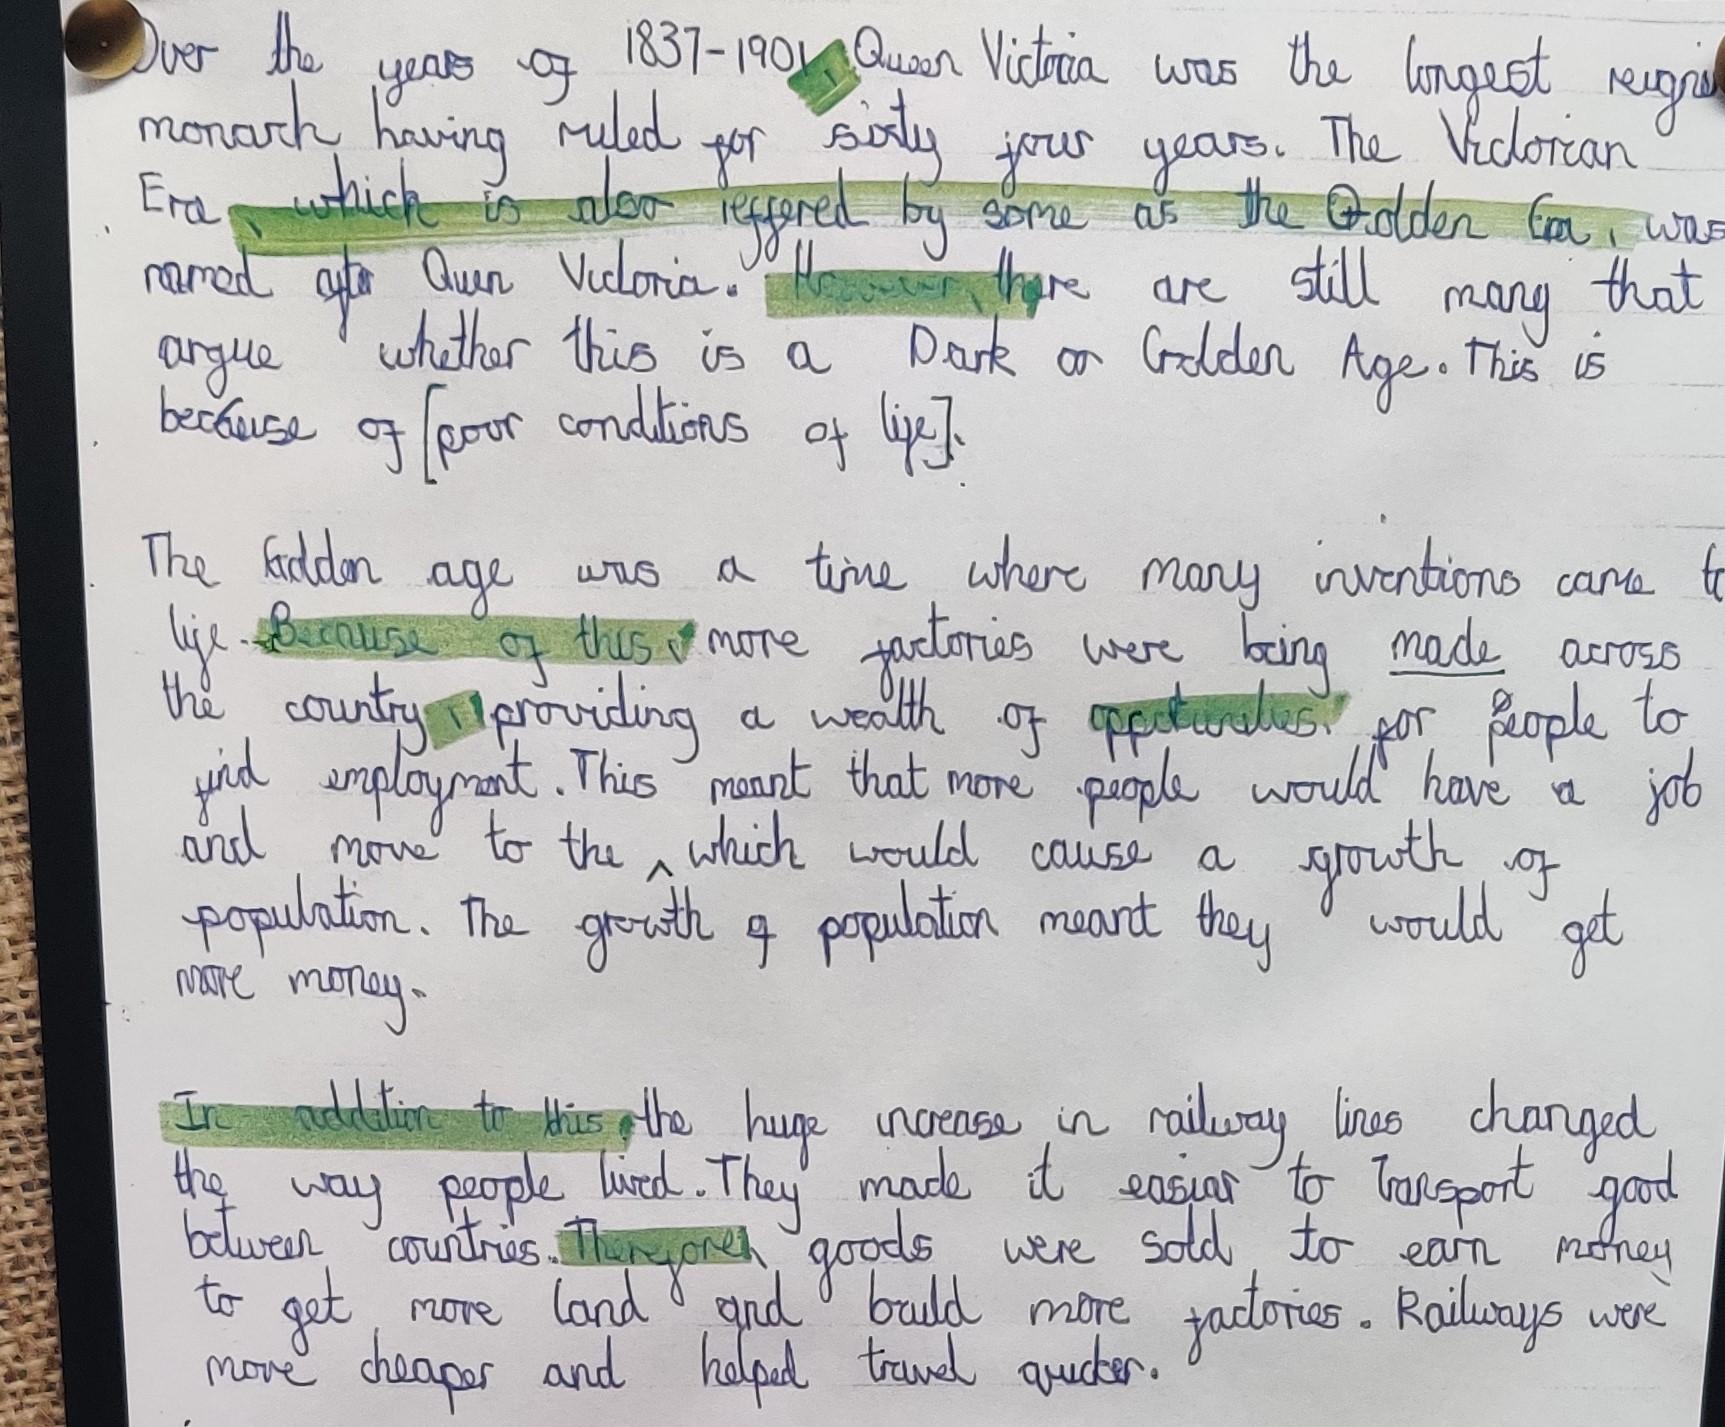 Over the years of 1837-1901, Queen Victoria was the longest reigni
monarch having ruled for sixty four years. The Victorian
Era, which is also reffered by some as the Golden Era, was
named after Queen Victoria. However, there are still many that
argue whether this is a Dark or Golden Age. This is
because of [poor conditions of life].
The Golden age was a time where many inventions came to
life. Because of this, more factories were being made across
the country, providing a wealth of for people to
find employment. This meant that more people would have a job
and move to the ^ which would cause a growth of
population. The growth of population meant they would get
more money.
In addition to this, the huge increase in railway lines changed
the way people lived. They made it easier to transport good
between countries. Therefore, goods were sold to earn money
to get more land and build more factories. Railways were
more cheaper and helped travel quicker.